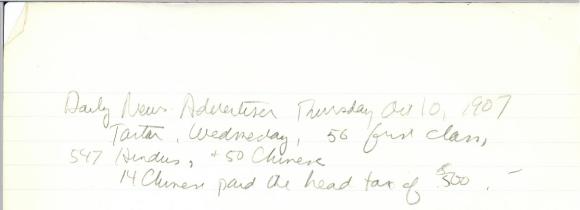 Daily News Advertiser Thursday Oct 10, 1907
Tartar, Wednesday, 56 first class,
547 Hindus, + 50 Chinese
14 Chinese paid the head tax of $500. –